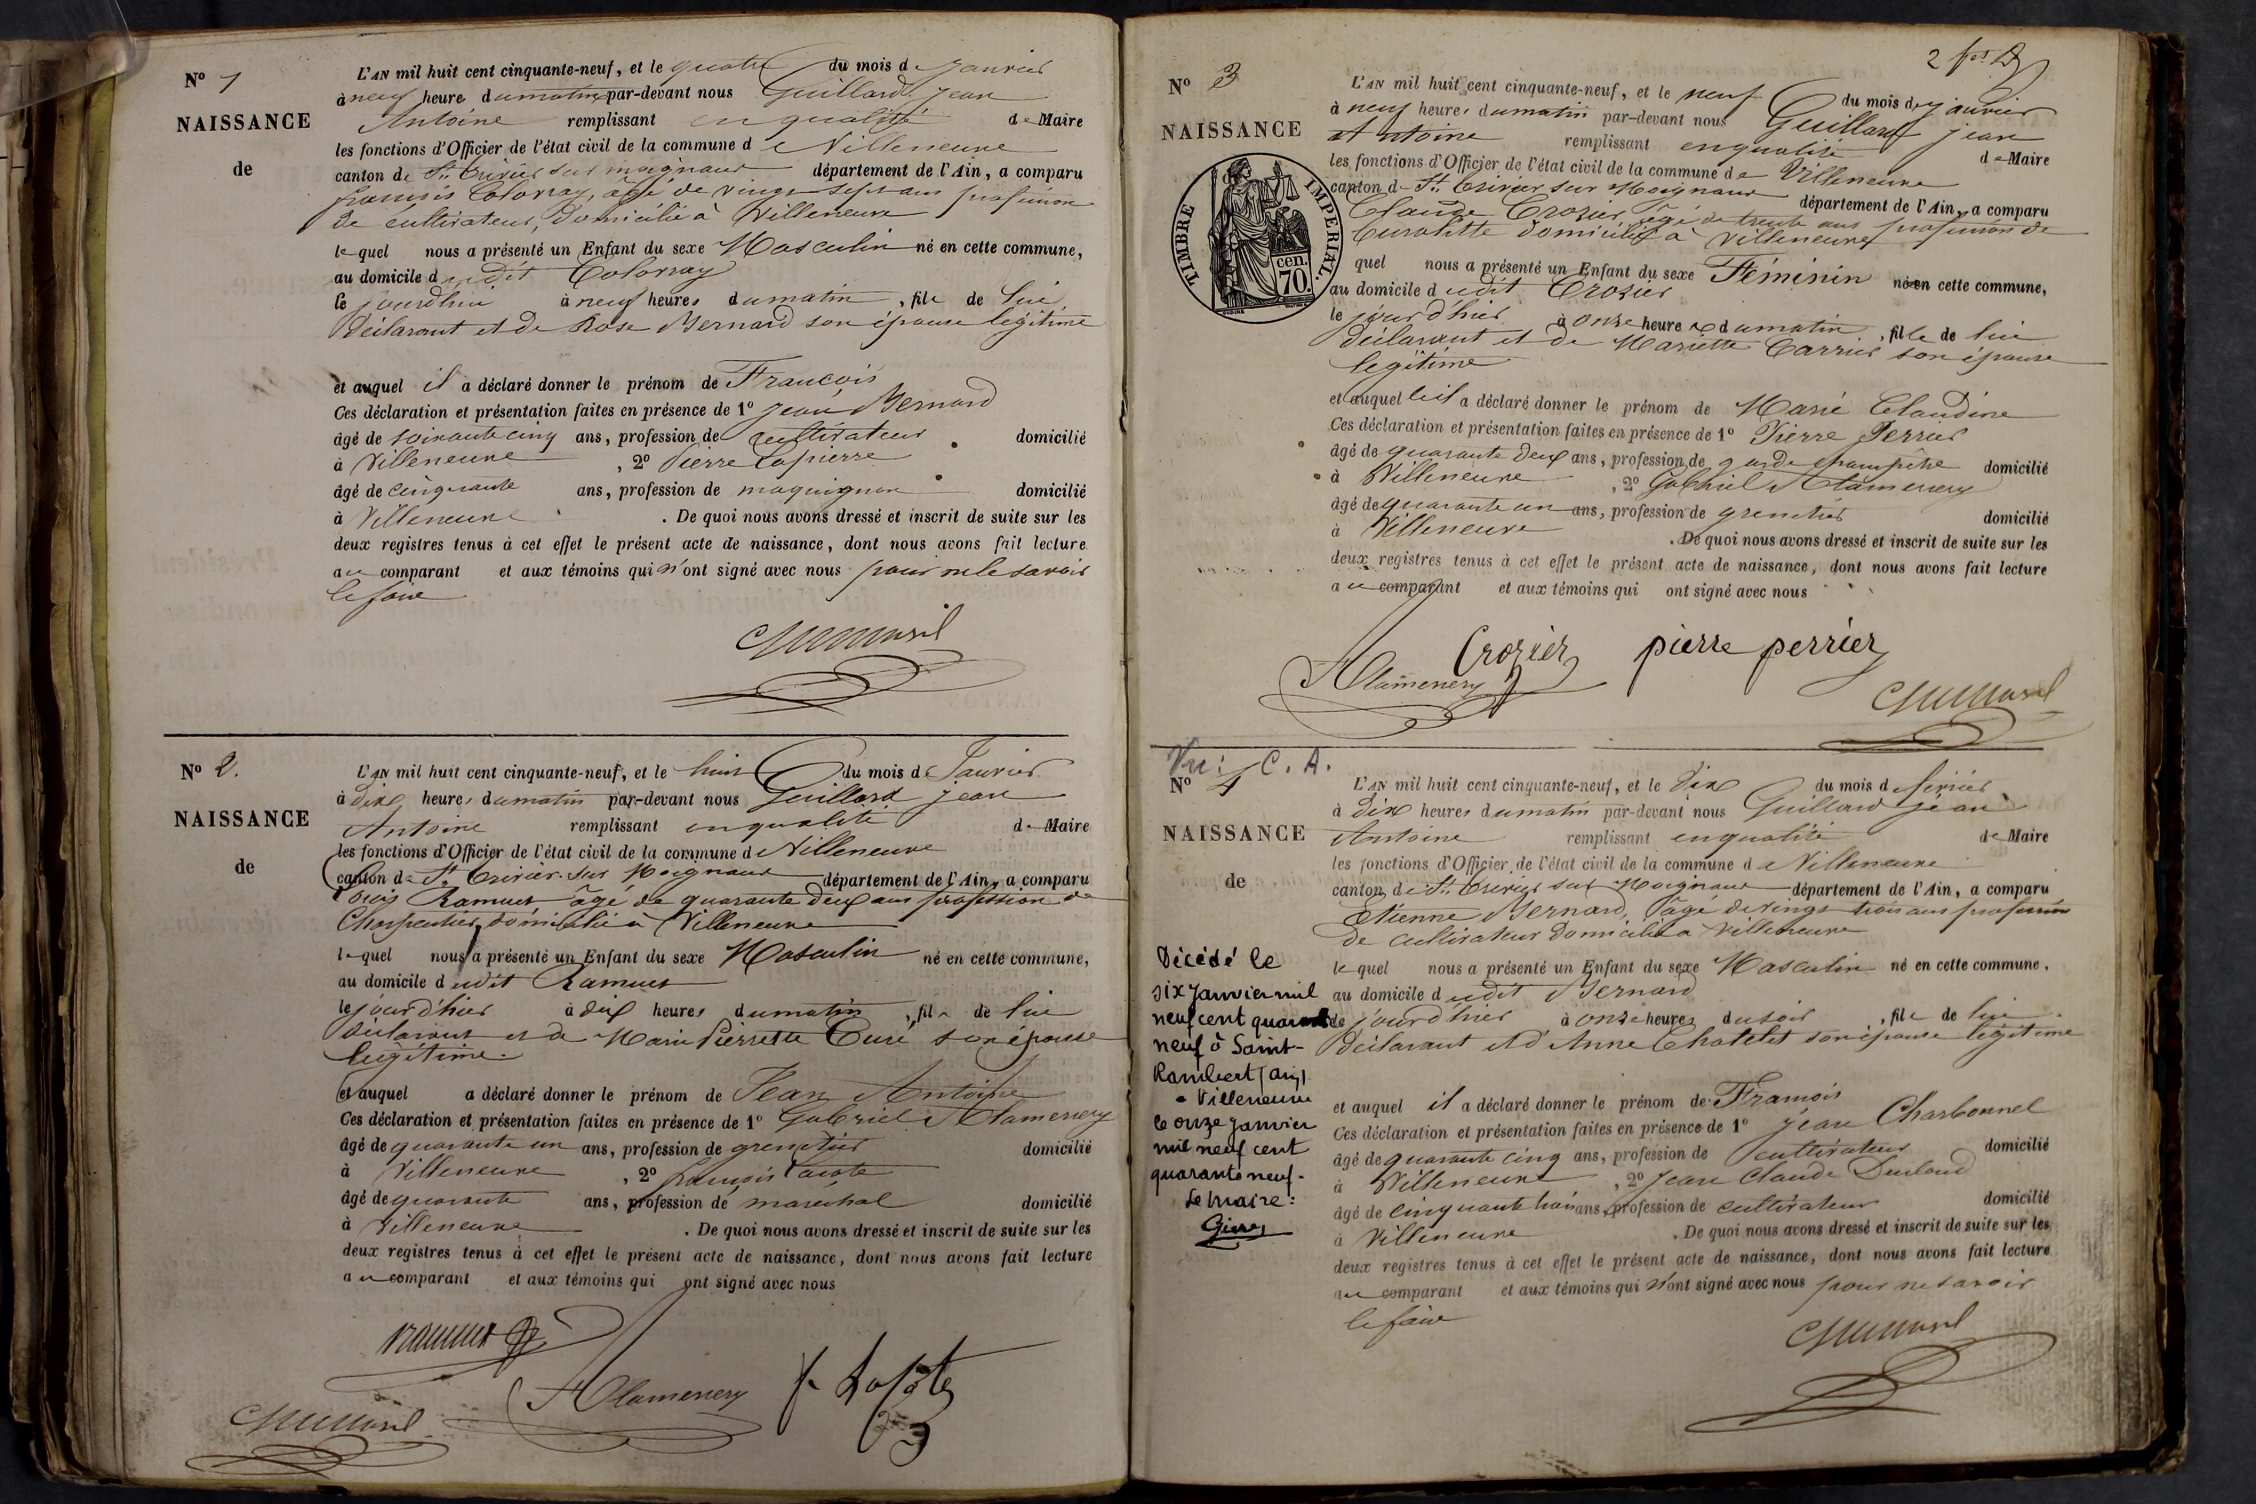 No 1
NAISSANCE
de
L'AN mil huit cent cinquante-neuf, et le quatre du mois de janvier
à neuf heures du matin par-devant nous Guillard jean
Antoine remplissant en qualité de Maire
les fonctions d'Officier de l'état civil de la commune de Villeneuve
canton de St. Trivier sur moignans département de l'Ain, a comparu
françois Colovray, âgé de vingt sept ans profession
de cultivateur, domicilié à Villeneuve
lequel nous a présenté un Enfant du sexe Masculin né en cette commune,
au domicile dudit Colovray
le jourd'hui à neuf heures du matin, fils de lui
Déclarant et de Rose Bernard son épouse légitime
et auquel il a déclaré donner le prénom de François
Ces déclaration et présentation faites en présence de 1º jean Bernard
âgé de soixante cinq ans, profession de cultivateur domicilié
à Villeneuve, 2º Pierre Lapierre
âgé de cinquante ans, profession de maquignon domicilié
à Villeneuve. De quoi nous avons dressé et inscrit de suite sur les
deux registres tenus à cet effet le présent acte de naissance, dont nous avons fait lecture
au comparant et aux témoins qui n'ont signé avec nous pour ne le savoir
le faire
No 2.
NAISSANCE
de
L'AN mil huit cent cinquante-neuf, et le huit du mois de Janvier
à dix heures du matin par-devant nous Guillard jean
Antoine remplissant en qualité de Maire
les fonctions d'Officier de l'état civil de la commune de Villeneuve
canton de St Trivier sur Moignans département de l'Ain, a comparu
Louis Ramuet âgé de quarante deux ans profession de
Charpentier domicilié à Villeneuve
lequel nous a présenté un Enfant du sexe Masculin né en cette commune,
au domicile dudit Ramuet
le jour d'hier à dix heures du matin, fils de lui
Déclarant et de Marie Pierrette Curé son épouse
légitime.
et auquel a déclaré donner le prénom de Jean Antoine
Ces déclaration et présentation faites en présence de 1º Gabriel Alamenery
âgé de quarante un ans, profession de grenetier domicilié
à Villeneuve, 2º françois
âgé de quarante ans, profession de maréchal domicilié
à Villeneuve. De quoi nous avons dressé et inscrit de suite sur les
deux registres tenus à cet effet le présent acte de naissance, dont nous avons fait lecture
au comparant et aux témoins qui ont signé avec nous
Ramuet
Alamenery
2
No 3
NAISSANCE
TIMBRE IMPERIAL
70. cen.
L'AN mil huit cent cinquante-neuf, et le neuf du mois de janvier
à neuf heures du matin par-devant nous Guillard jean
Antoine remplissant en qualité de Maire
les fonctions d'Officier de l'état civil de la commune de Villeneuve
canton de St. Trivier sur Moignans département de l'Ain, a comparu
Claude Crozier, âgé de trente ans profession de
domicilié à Villeneuve
quel nous a présenté un Enfant du sexe Féminin né en cette commune,
au domicile dudit Crozier
le jour d'hier à onze heures du matin, fille de lui
Déclarant et de Mariette Carrier son épouse
légitime
et auquel il a déclaré donner le prénom de Marie Claudine
Ces déclaration et présentation faites en présence de 1º Pierre Perrier
âgé de quarante deux ans, profession de garde champêtre domicilié
à Villeneuve, 2º Gabriel Alamenery
âgé de quarante un ans, profession de grenetier domicilié
à Villeneuve. De quoi nous avons dressé et inscrit de suite sur les
deux registres tenus à cet effet le présent acte de naissance, dont nous avons fait lecture
au comparant et aux témoins qui ont signé avec nous
Crozier pierre perrier
Alamenery
Vu: C. A.
No 4
NAISSANCE
de
L'AN mil huit cent cinquante-neuf, et le dix du mois de février
à dix heures du matin par-devant nous Guillard jean
Antoine remplissant en qualité de Maire
les fonctions d'Officier de l'état civil de la commune de Villeneuve
canton de St. Trivier sur Moignans département de l'Ain, a comparu
Etienne Bernard, âgé de vingt trois ans profession
de cultivateur domicilié à Villeneuve
lequel nous a présenté un Enfant du sexe Masculin né en cette commune,
au domicile dudit Bernard
le jour d'hier à onze heures du soir, fils de lui
Déclarant et d'Anne Chatelet son épouse légitime
et auquel il a déclaré donner le prénom de François
Ces déclaration et présentation faites en présence de 1º jean Charbonnel
âgé de quarante cinq ans, profession de cultivateur domicilié
à Villeneuve, 2º jean Claude
âgé de cinquante trois ans, profession de cultivateur domicilié
à Villeneuve. De quoi nous avons dressé et inscrit de suite sur les
deux registres tenus à cet effet le présent acte de naissance, dont nous avons fait lecture
au comparant et aux témoins qui n'ont signé avec nous pour ne savoir
le faire
Décédé le
six janvier mil
neuf cent quarante
neuf à Saint-
Rambert (Ain)
Villeneuve
le onze janvier
mil neuf cent
quarante neuf.
Le Maire: